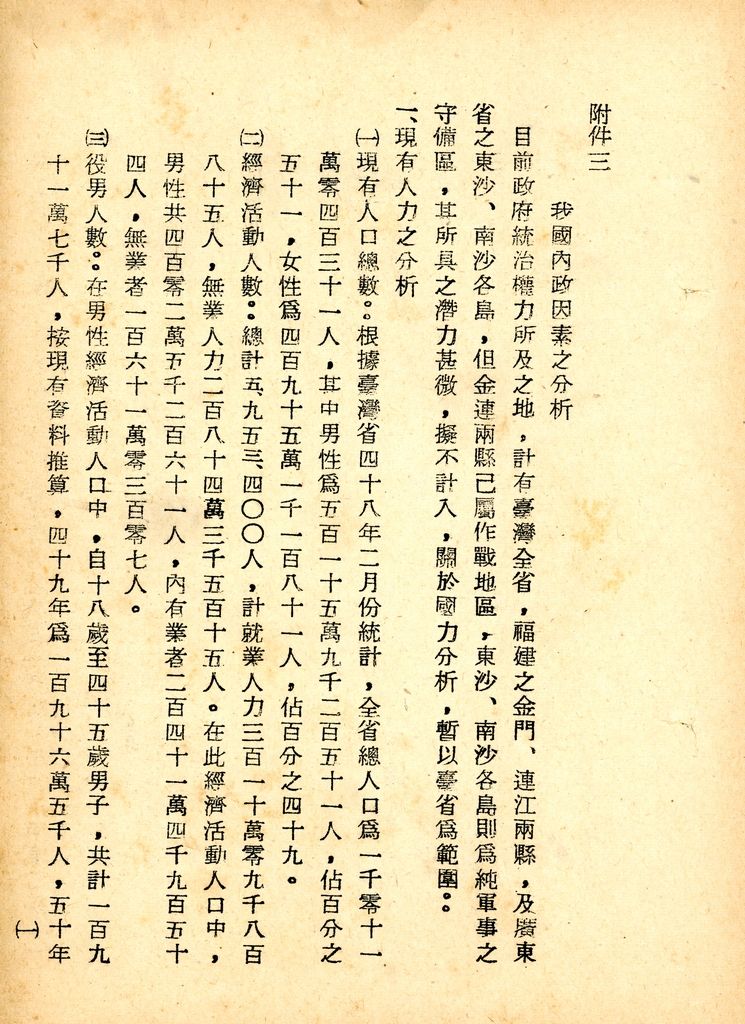 附件三
我國內政因素之分析
目前政府統治權力所及之地，計有臺灣全省，福建之金門、連江兩縣，及廣東
省之東沙、南沙各島，但金連兩縣已屬作戰地區，東沙、南沙各島則爲純軍事之
守備區，其所具之潛力甚微，擬不計入，關於國力分析，暫以臺省爲範圍。。
一、現有人力之分析
㈠現有人口總數：根據臺灣省四十八年二月份統計，全省總人口爲一千零十一
萬零四百三十一人，其中男性爲五百一十五萬九千二百五十一人，佔百分之
五十一，女性爲四百九十五萬一千一百八十一人，佔百分之四十九。
㈡經濟活動人數：總計五、九五三、四〇〇人，計就業人力三百一十萬零九千八百
八十五人，無業人力二百八十四萬三千五百十五人。在此經濟活動人口中，
男性共四百零二萬五千二百六十一人，內有業者二百四十一萬四千九百五十
四人，無業者一百六十一萬零三百零七人。
㈢役男人數：在男性經濟活動人口中，自十八歲至四十五歲男子，共計一百九
十一萬七千人，按現有資料推算，四十九年爲一百九十六萬五千人，五十年
㈠